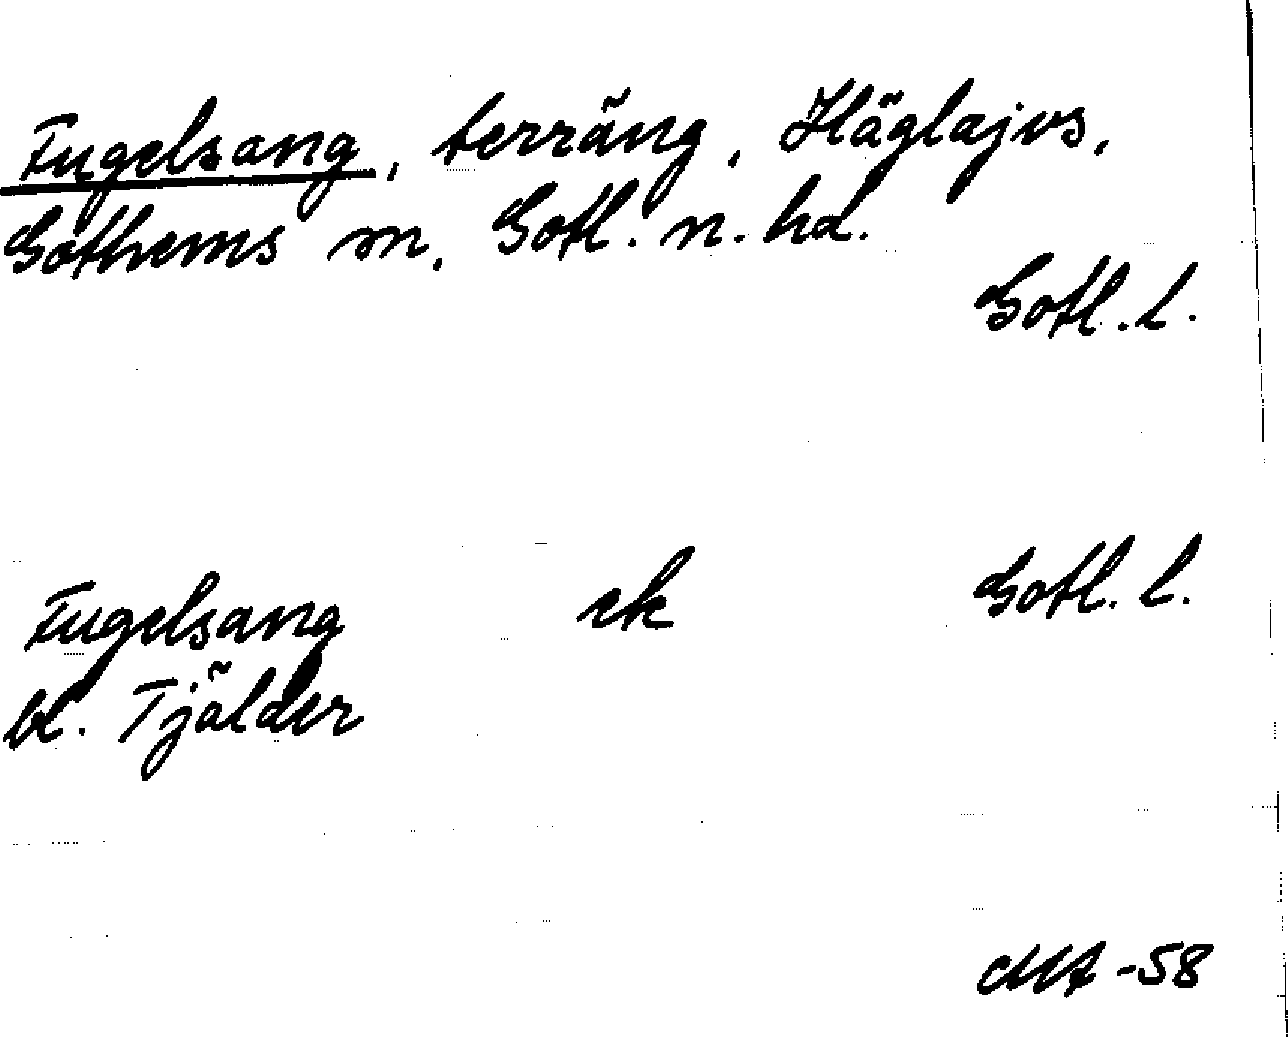 Fugelsang, terräng, Häglajvs,
Gothems sn, Gotl. n. hd.
Gotl. l.
Fugelsang ek Gotl. l.
bl. Tjälder
MA -58